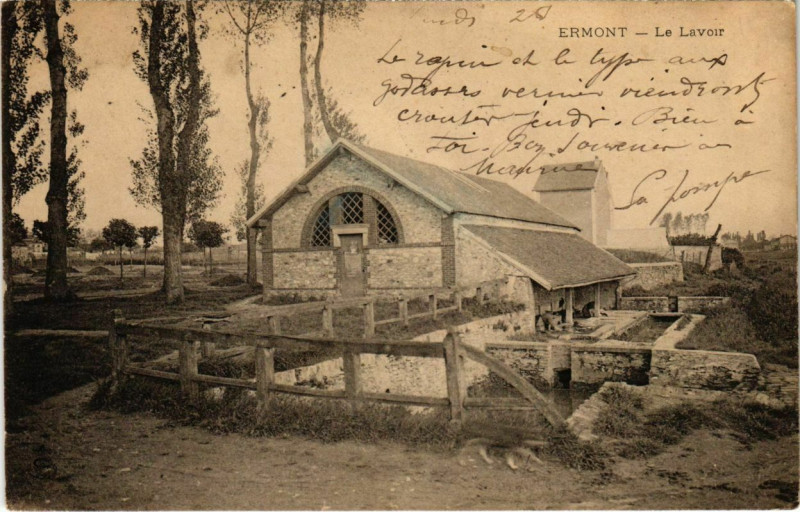 jeudi 28
ERMONT — Le Lavoir
Le rapin et le type aux
godasses vernies viendront
croûter jeudi. Bien à
toi. Bon souvenir à
Maurice
La pompe